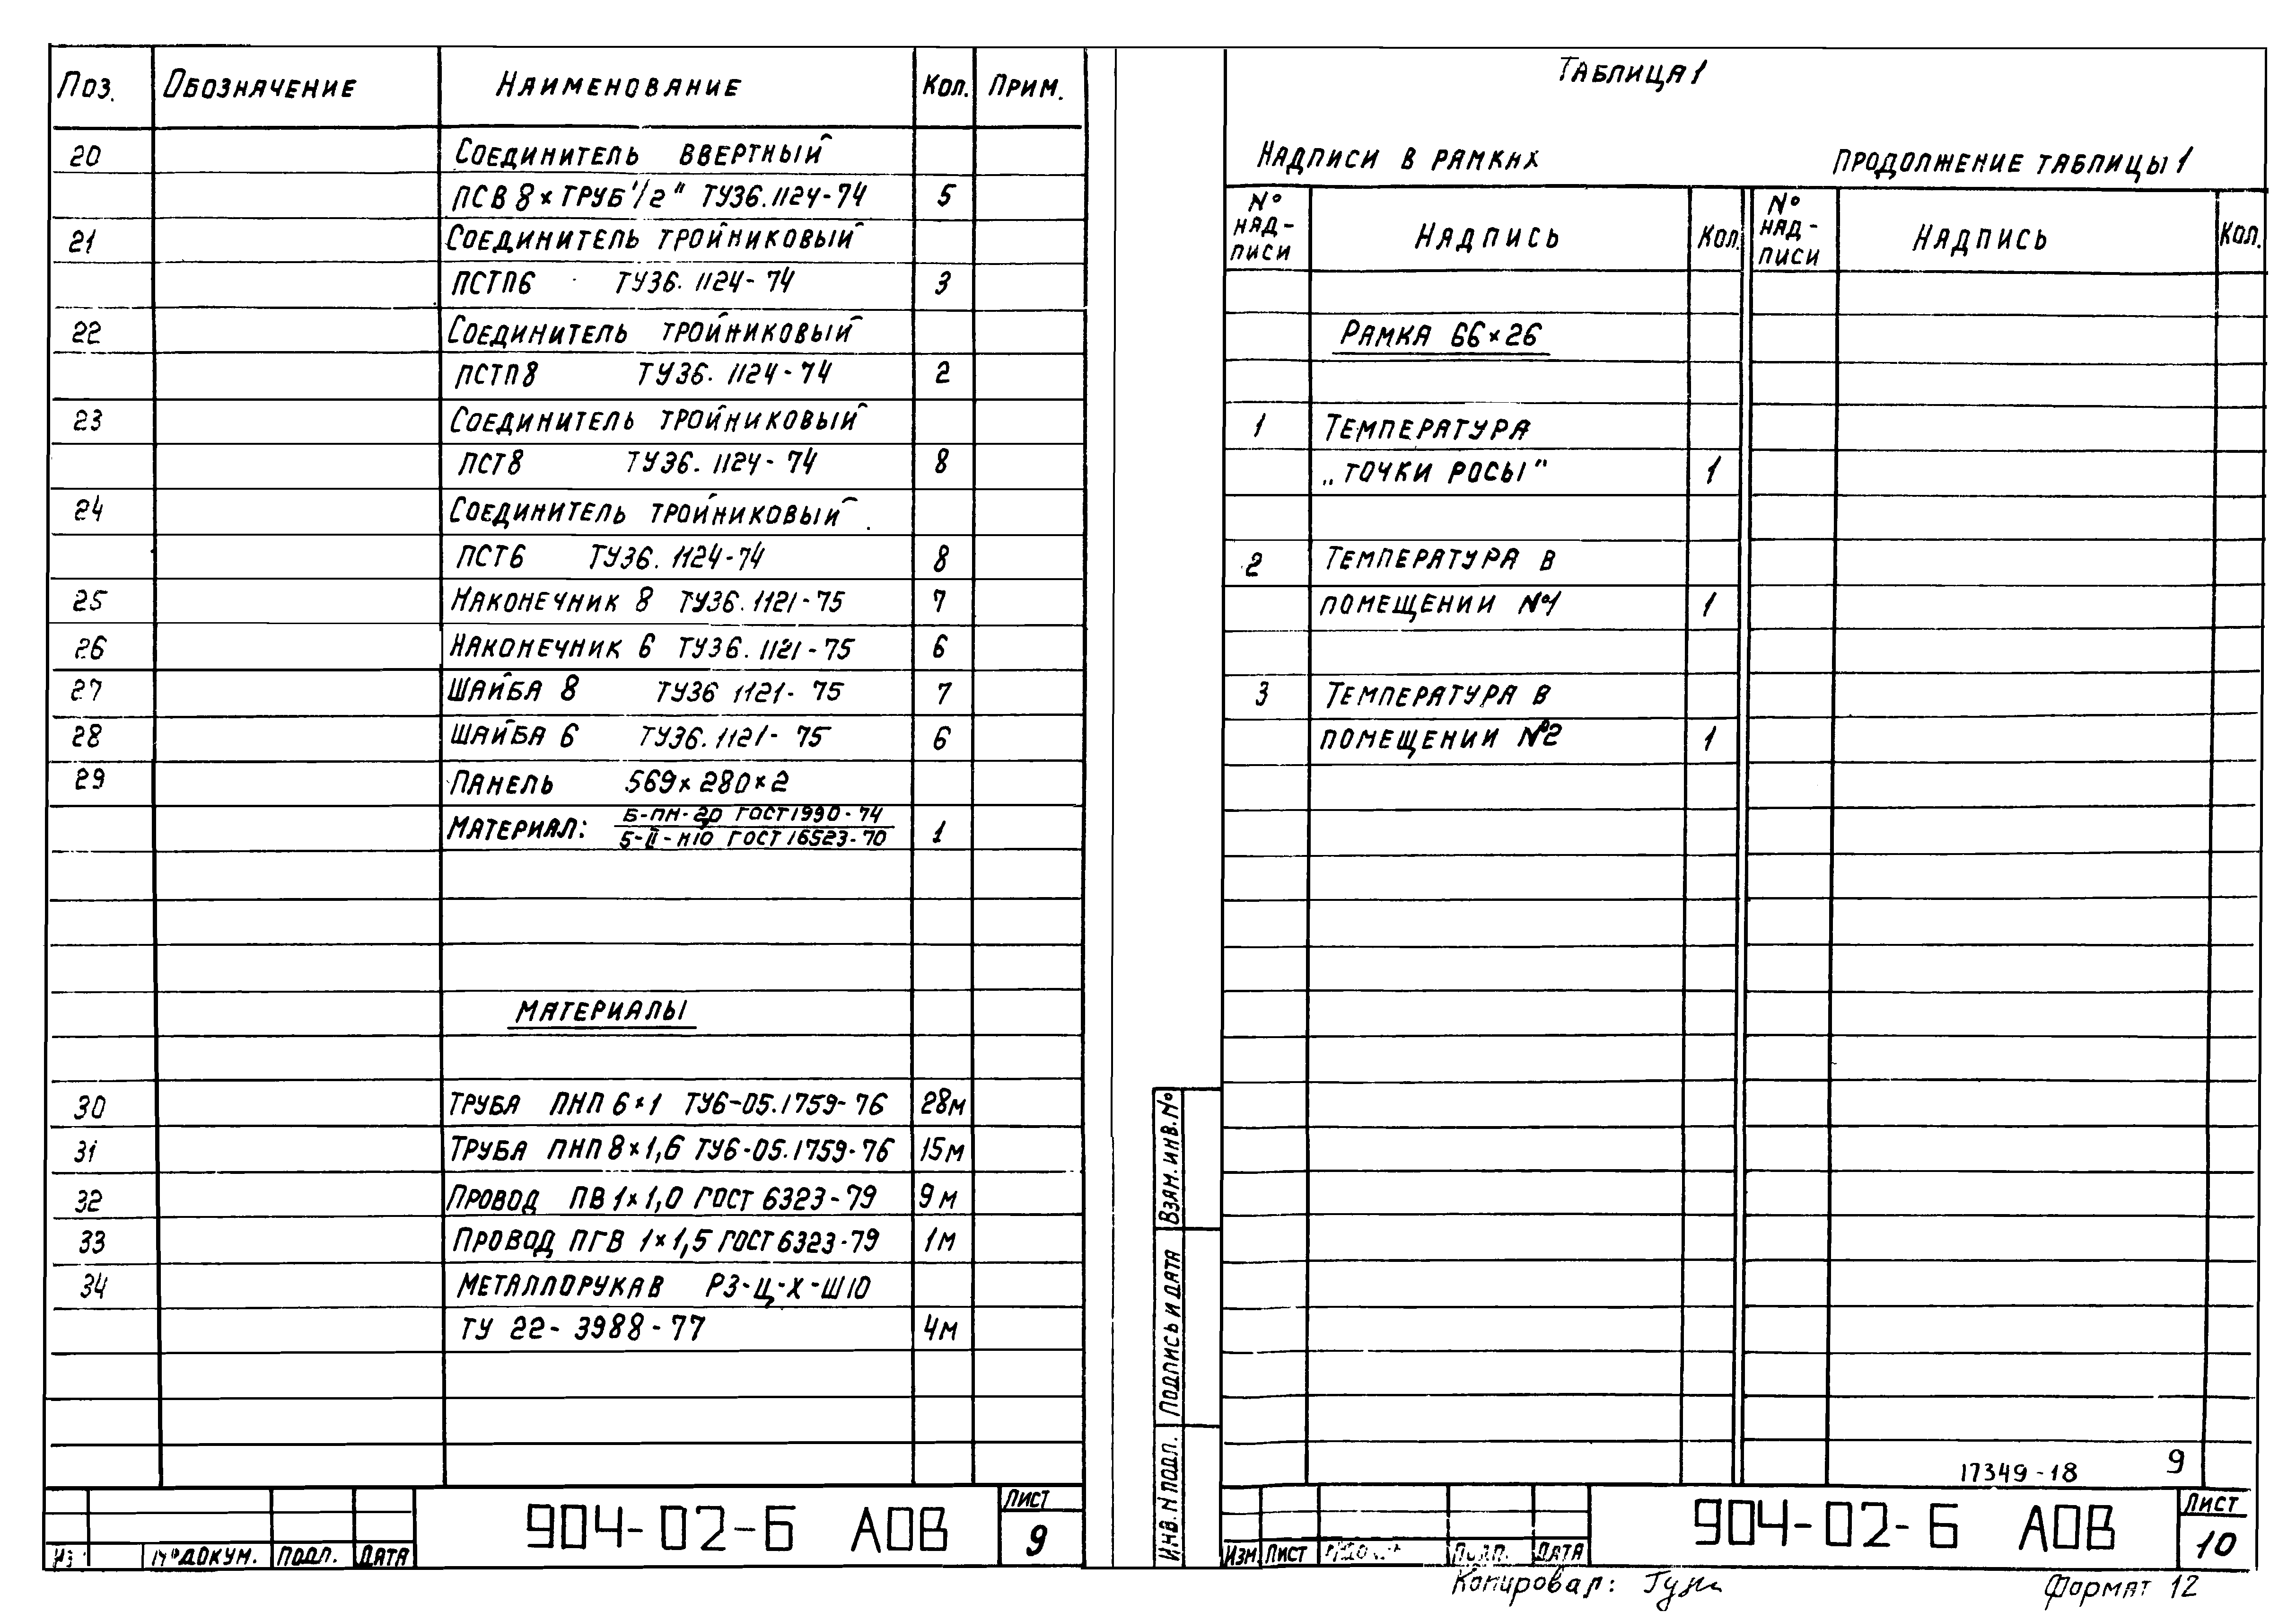 Поз. Обозначение Наименование Кол. Прим.
20 Соединитель ввертный
ПСВ 8 × труб 1/2" ТУ36.1124-74 5
21 Соединитель тройниковый
ПСТП6 ТУ36.1124-74 3
22 Соединитель тройниковый
ПСТП8 ТУ36.1124-74 2
23 Соединитель тройниковый
ПСТ8 ТУ36.1124-74 8
24 Соединитель тройниковый
ПСТ6 ТУ36.1124-74 8
25 Наконечник 8 ТУ36.1121-75 7
26 Наконечник 6 ТУ36.1121-75 6
27 Шайба 8 ТУ36 1121-75 7
28 Шайба 6 ТУ36.1121-75 6
29 Панель 569×280×2
Б-ПН-2,0 ГОСТ 1990-74
Материал: 1
5-II-Н10 ГОСТ 16523-70
Материалы
30 Труба ПНП 6×1 ТУ6-05.1759-76 28м
31 Труба ПНП 8×1,6 ТУ6-05.1759-76 15м
32 Провод ПВ 1×1,0 ГОСТ 6323-79 9м
33 Провод ПГВ 1×1,5 ГОСТ 6323-79 1м
34 Металлорукав РЗ-Ц-Х-Ш10
ТУ 22-3988-77 4м
№ докум. Подп. Дата
904-02-6 АОВ
Лист
9
Взам. инв. №
Подпись и дата
Инв. N подл.
Таблица 1
Надписи в рамках Продолжение таблицы 1
№ надписи Надпись Кол. № надписи Надпись Кол.
Рамка 66×26
1 Температура
„точки росы" 1
2 Температура в
помещении №1 1
3 Температура в
помещении №2 1
17349-18 9
Изм Лист Подп. Дата
904-02-6 АОВ
Лист
10
Копировал:
Формат 12